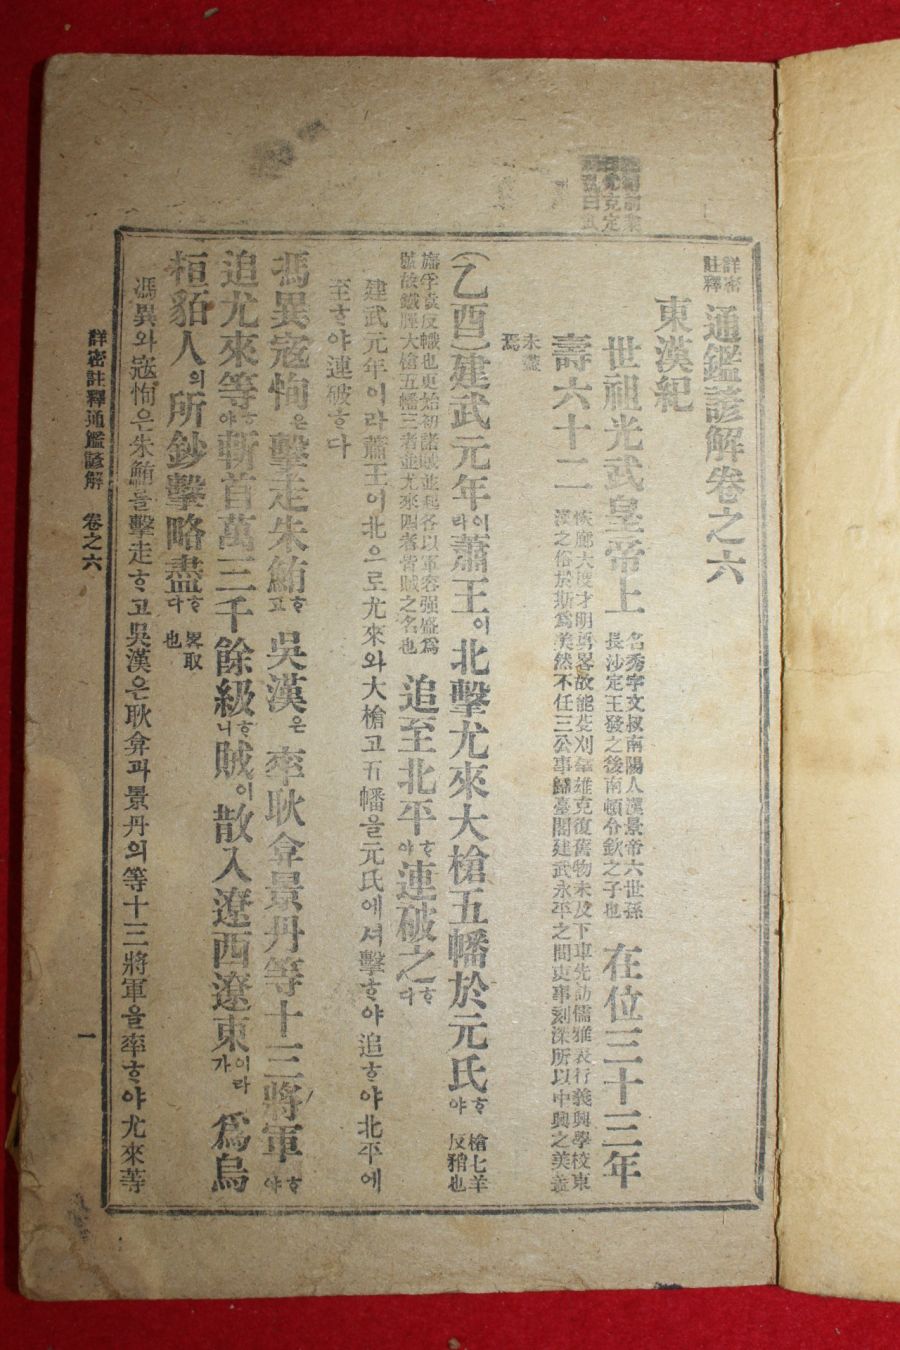 詳密註釋 通鑑諺解卷之六
東漢紀
世祖光武皇帝上 名秀字文叔南陽人漢景帝六世孫長沙定王發之後南頓令欽之子也 在位三十三年
壽六十二 恢廓大度才明勇畧故能芟刈羣雄克復舊物未及下車先訪儒雅表行義興學校東漢之俗於斯爲美然不任三公事歸臺閣建武永平之間吏事刻深所以中興之美蓋
未盡焉
(乙酉)建武元年이라蕭王이北擊尤來大槍五幡於元氏ᄒᆞ야 槍七羊反矟也
旛孚袁反幟也更始初諸賊並起各以軍容强盛爲號故鐵脛大槍五幡三者並尤來四者皆賊之名也 追至北平ᄒᆞ야連破之ᄒᆞ다
建武元年이라蕭王이北으로尤來와大槍고五幡을元氏에셔擊ᄒᆞ야追ᄒᆞ야北平에
至ᄒᆞ야連破ᄒᆞ다
馮異寇恂은擊走朱鮪ᄒᆞ고吳漢은率耿弇景丹等十三將軍ᄒᆞ야
追尤來等ᄒᆞ야斬首萬三千餘級ᄒᆞ니賊이散入遼西遼東이라가爲烏
桓貊人의所鈔擊略盡ᄒᆞ다 畧取也
馮異와寇恂은朱鮪를擊走ᄒᆞ고吳漢은耿弇과景丹의等十三將軍을率ᄒᆞ야尤來等
詳密註釋通鑑諺解 卷之六
一